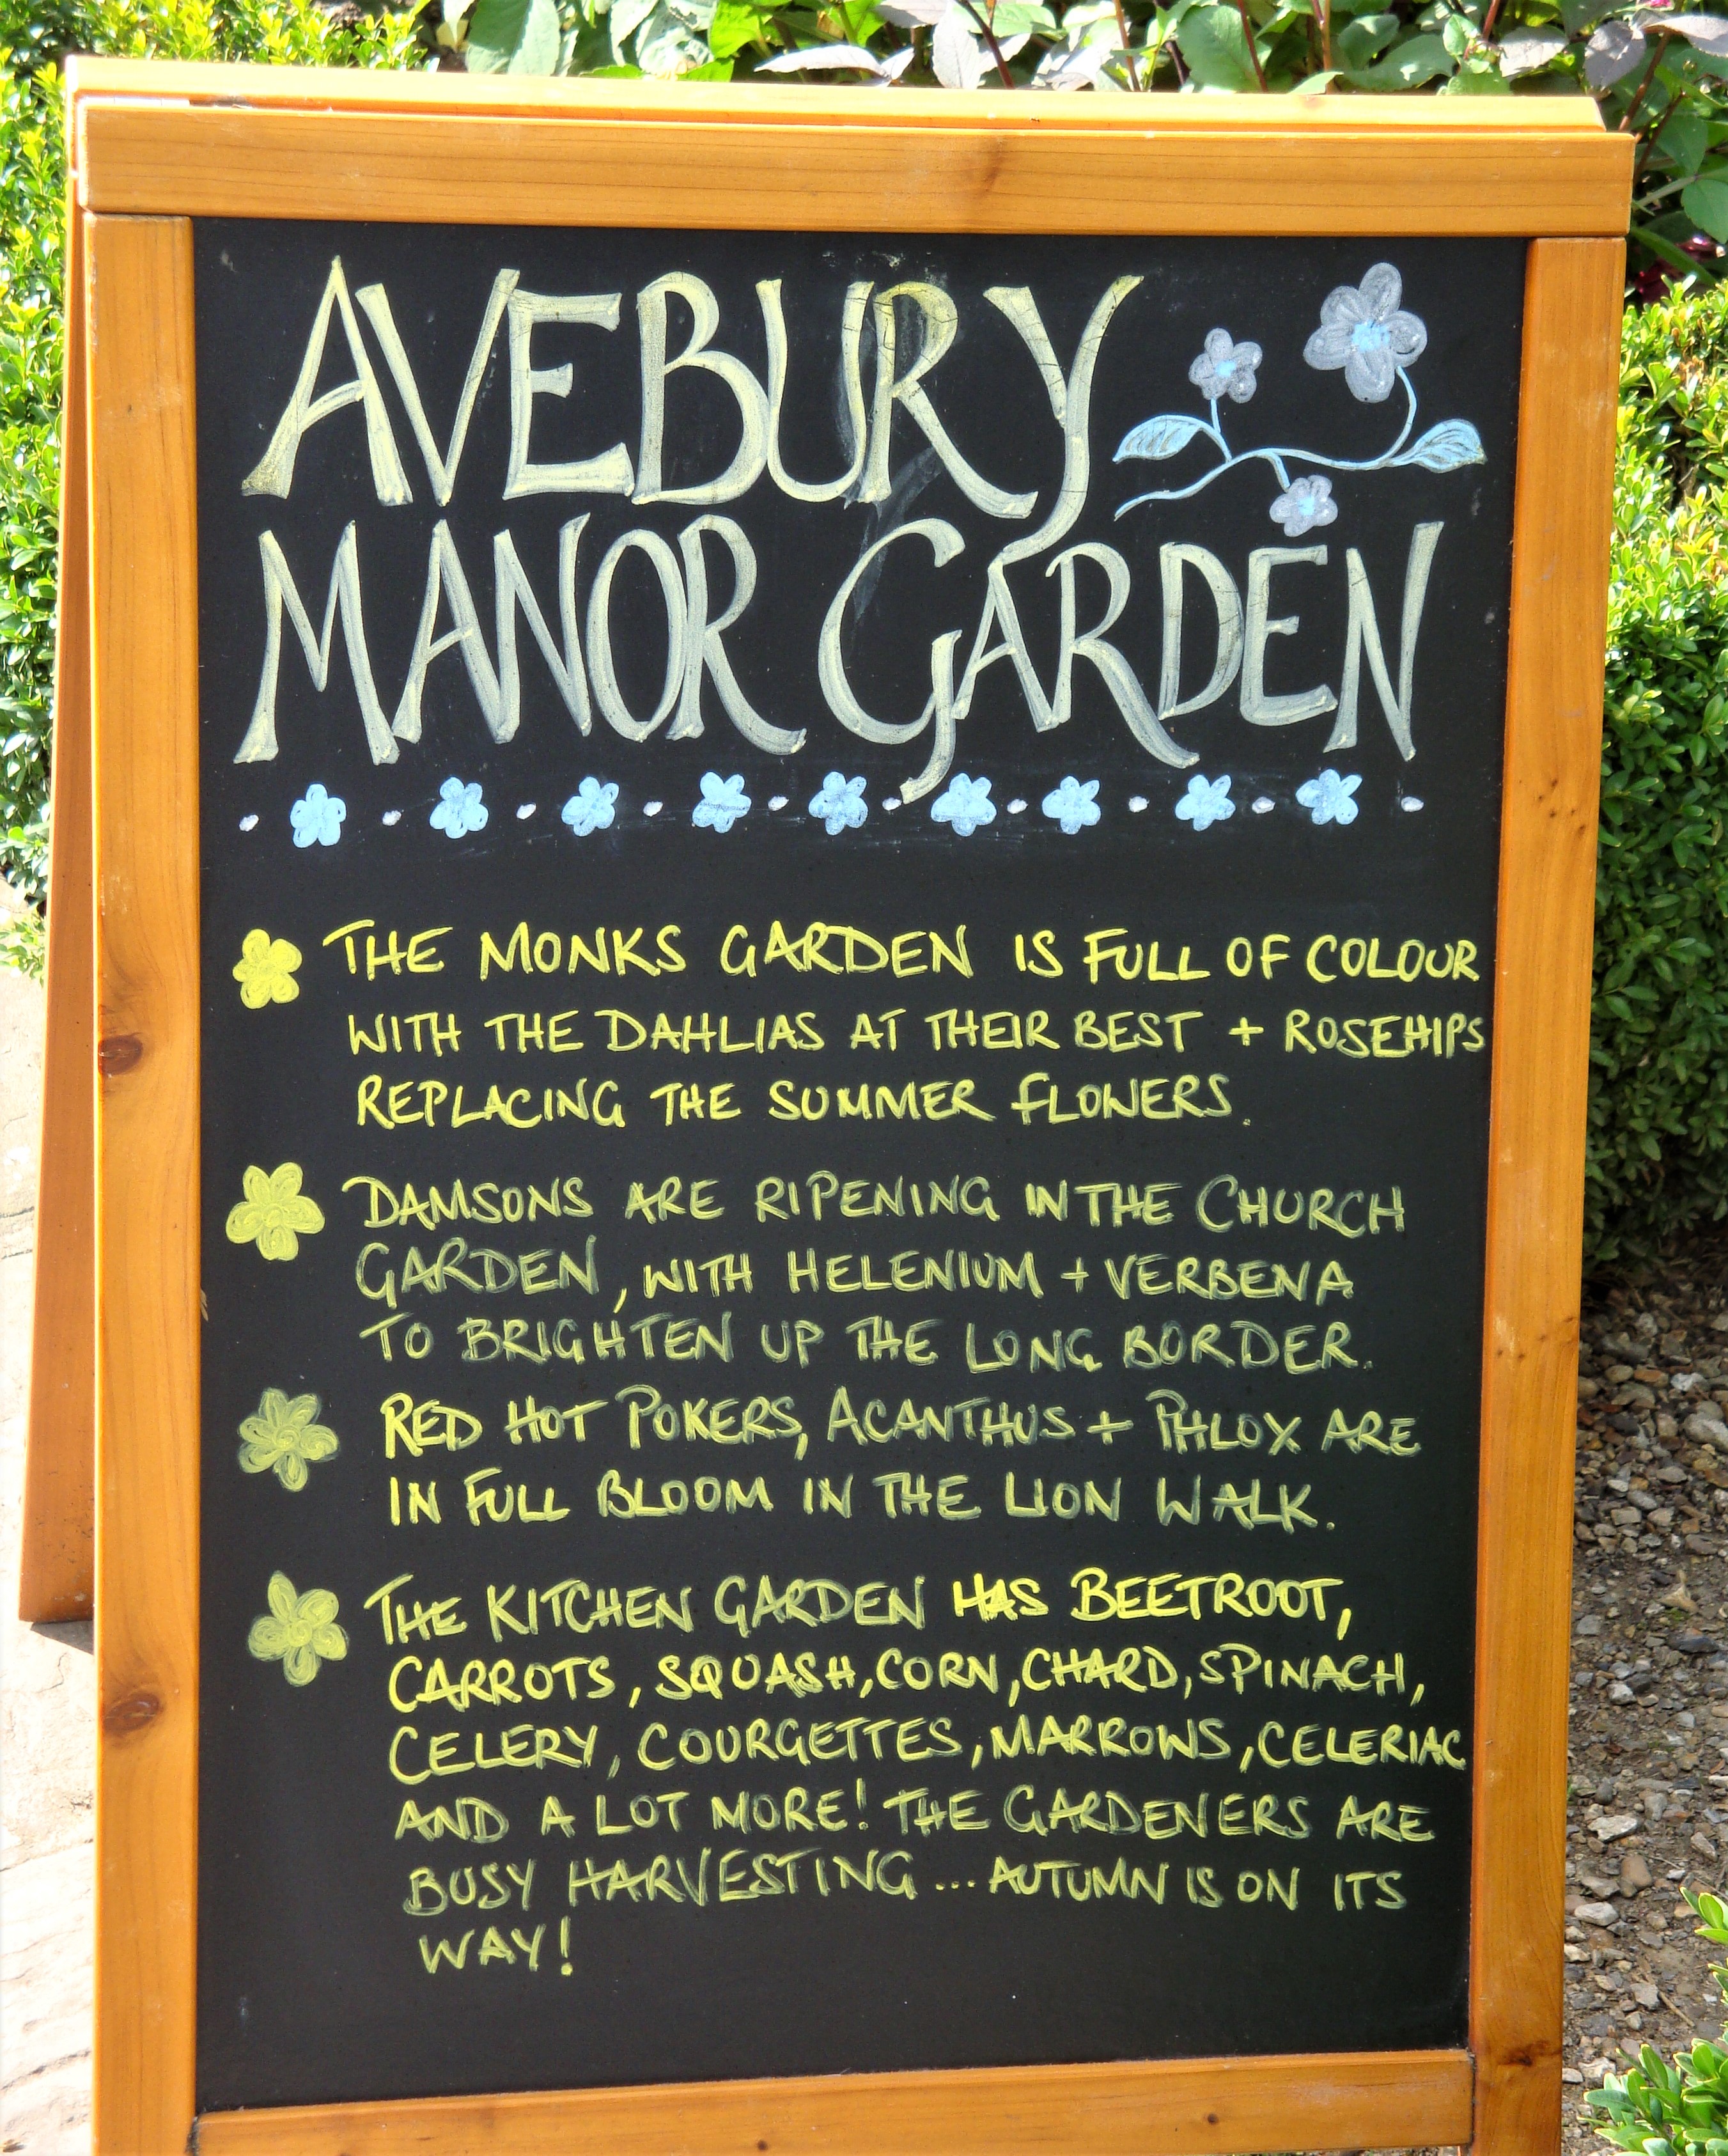 AVEBURY
MANOR GARDEN
THE MONKS GARDEN IS FULL OF COLOUR
WITH THE DAHLIAS AT THEIR BEST + ROSEHIPS
REPLACING THE SUMMER FLOWERS.
DAMSONS ARE RIPENING IN THE CHURCH
GARDEN, WITH HELENIUM + VERBENA
TO BRIGHTEN UP THE LONG BORDER.
RED HOT POKERS, ACANTHUS + PHLOX ARE
IN FULL BLOOM IN THE LION WALK.
THE KITCHEN GARDEN HAS BEETROOT,
CARROTS, SQUASH, CORN, CHARD, SPINACH,
CELERY, COURGETTES, MARROWS, CELERIAC
AND A LOT MORE! THE GARDENERS ARE
BUSY HARVESTING ... AUTUMN IS ON ITS
WAY!